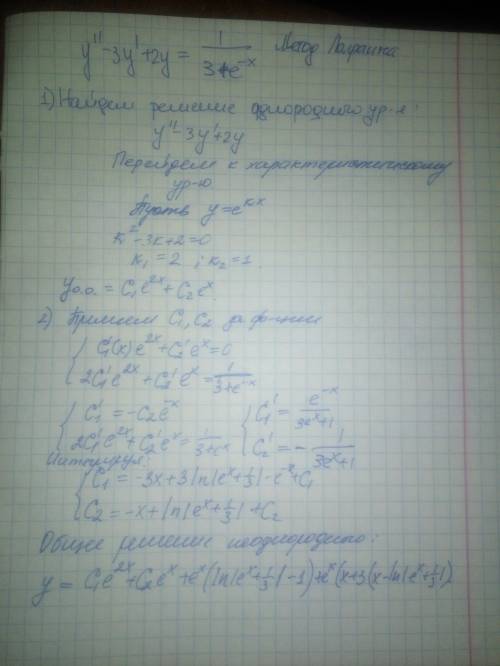 y'' - 3y' + 2y = 1/(3+e^{-x}) Метод Лагранжа
1) Найдем решение однородного ур-я:
y'' - 3y' + 2y
Перейдем к характеристическому
ур-ю.
Пусть y = e^{kx}
k² - 3k + 2 = 0
k₁ = 2 ; k₂ = 1
y о.о. = C₁e^{2x} + C₂e^x
2) Примем C₁, C₂ за ф-ции
{ C₁'(x)e^{2x} + C₂'e^x = 0
2C₁'e^{2x} + C₂'e^x = 1/(3+e^{-x})
{ C₁' = -C₂e^{-x} { C₁' = e^{-x}/(3e^x+1)
2C₁'e^{2x} + C₂'e^x = 1/(3+e^x) C₂' = - 1/(3e^x+1)
Интегрируя:
{ C₁ = -3x + 3ln|e^x + 1/3| - e^{-x} + C₁
C₂ = -x + ln|e^x + 1/3| + C₂
Общее решение неоднородного:
y = C₁e^{2x} + C₂e^x + e^x(ln|e^x + 1/3| - 1) + e^x(x + 3(x - ln|e^x + 1/3|)